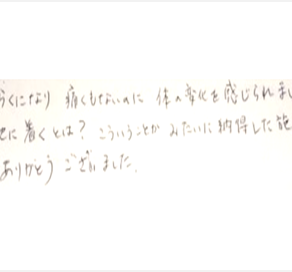 らくになり 痛くもないのに 体の変化を感じられまし
に着くとは? こういうことか みたいに納得した施
ありがとう ございました.